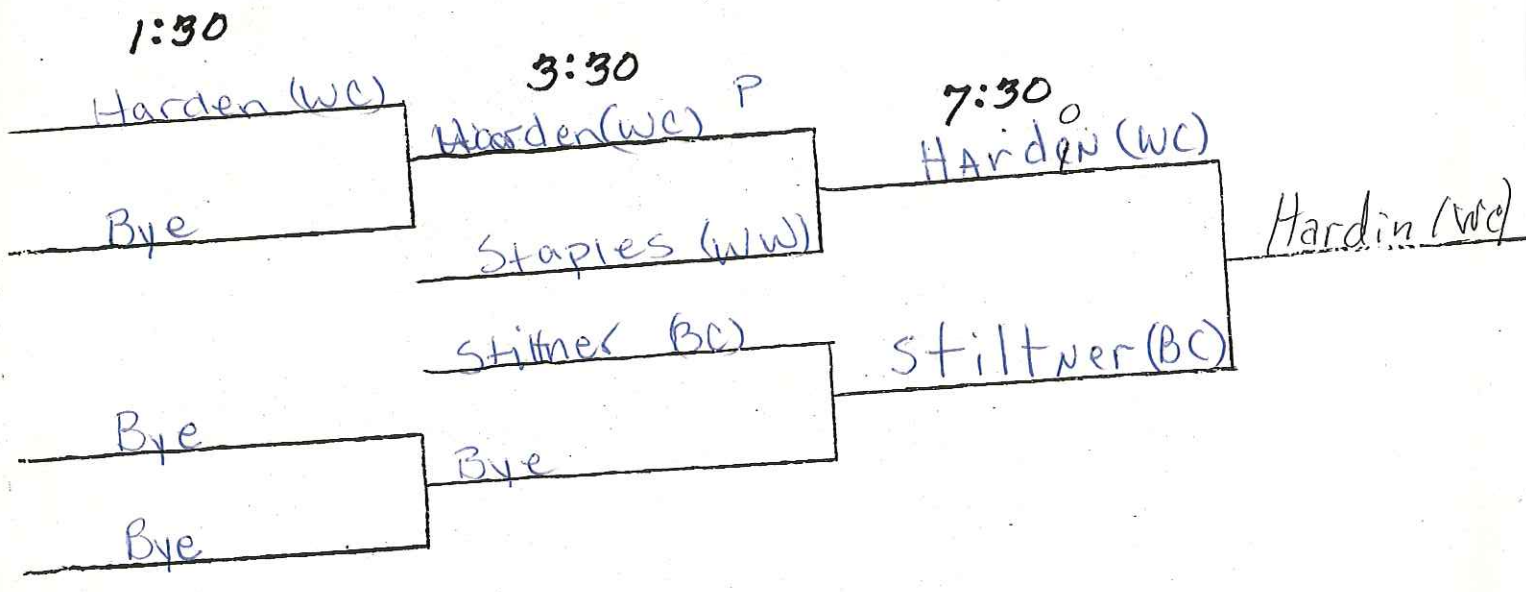 1:30
Harden (WC)
Bye
Bye
Bye
3:30
Harden (WC) P
Staples (WW)
Stiltner (BC)
Bye
7:30
Hardin (WC)
Stiltner (BC)
Hardin (WC)